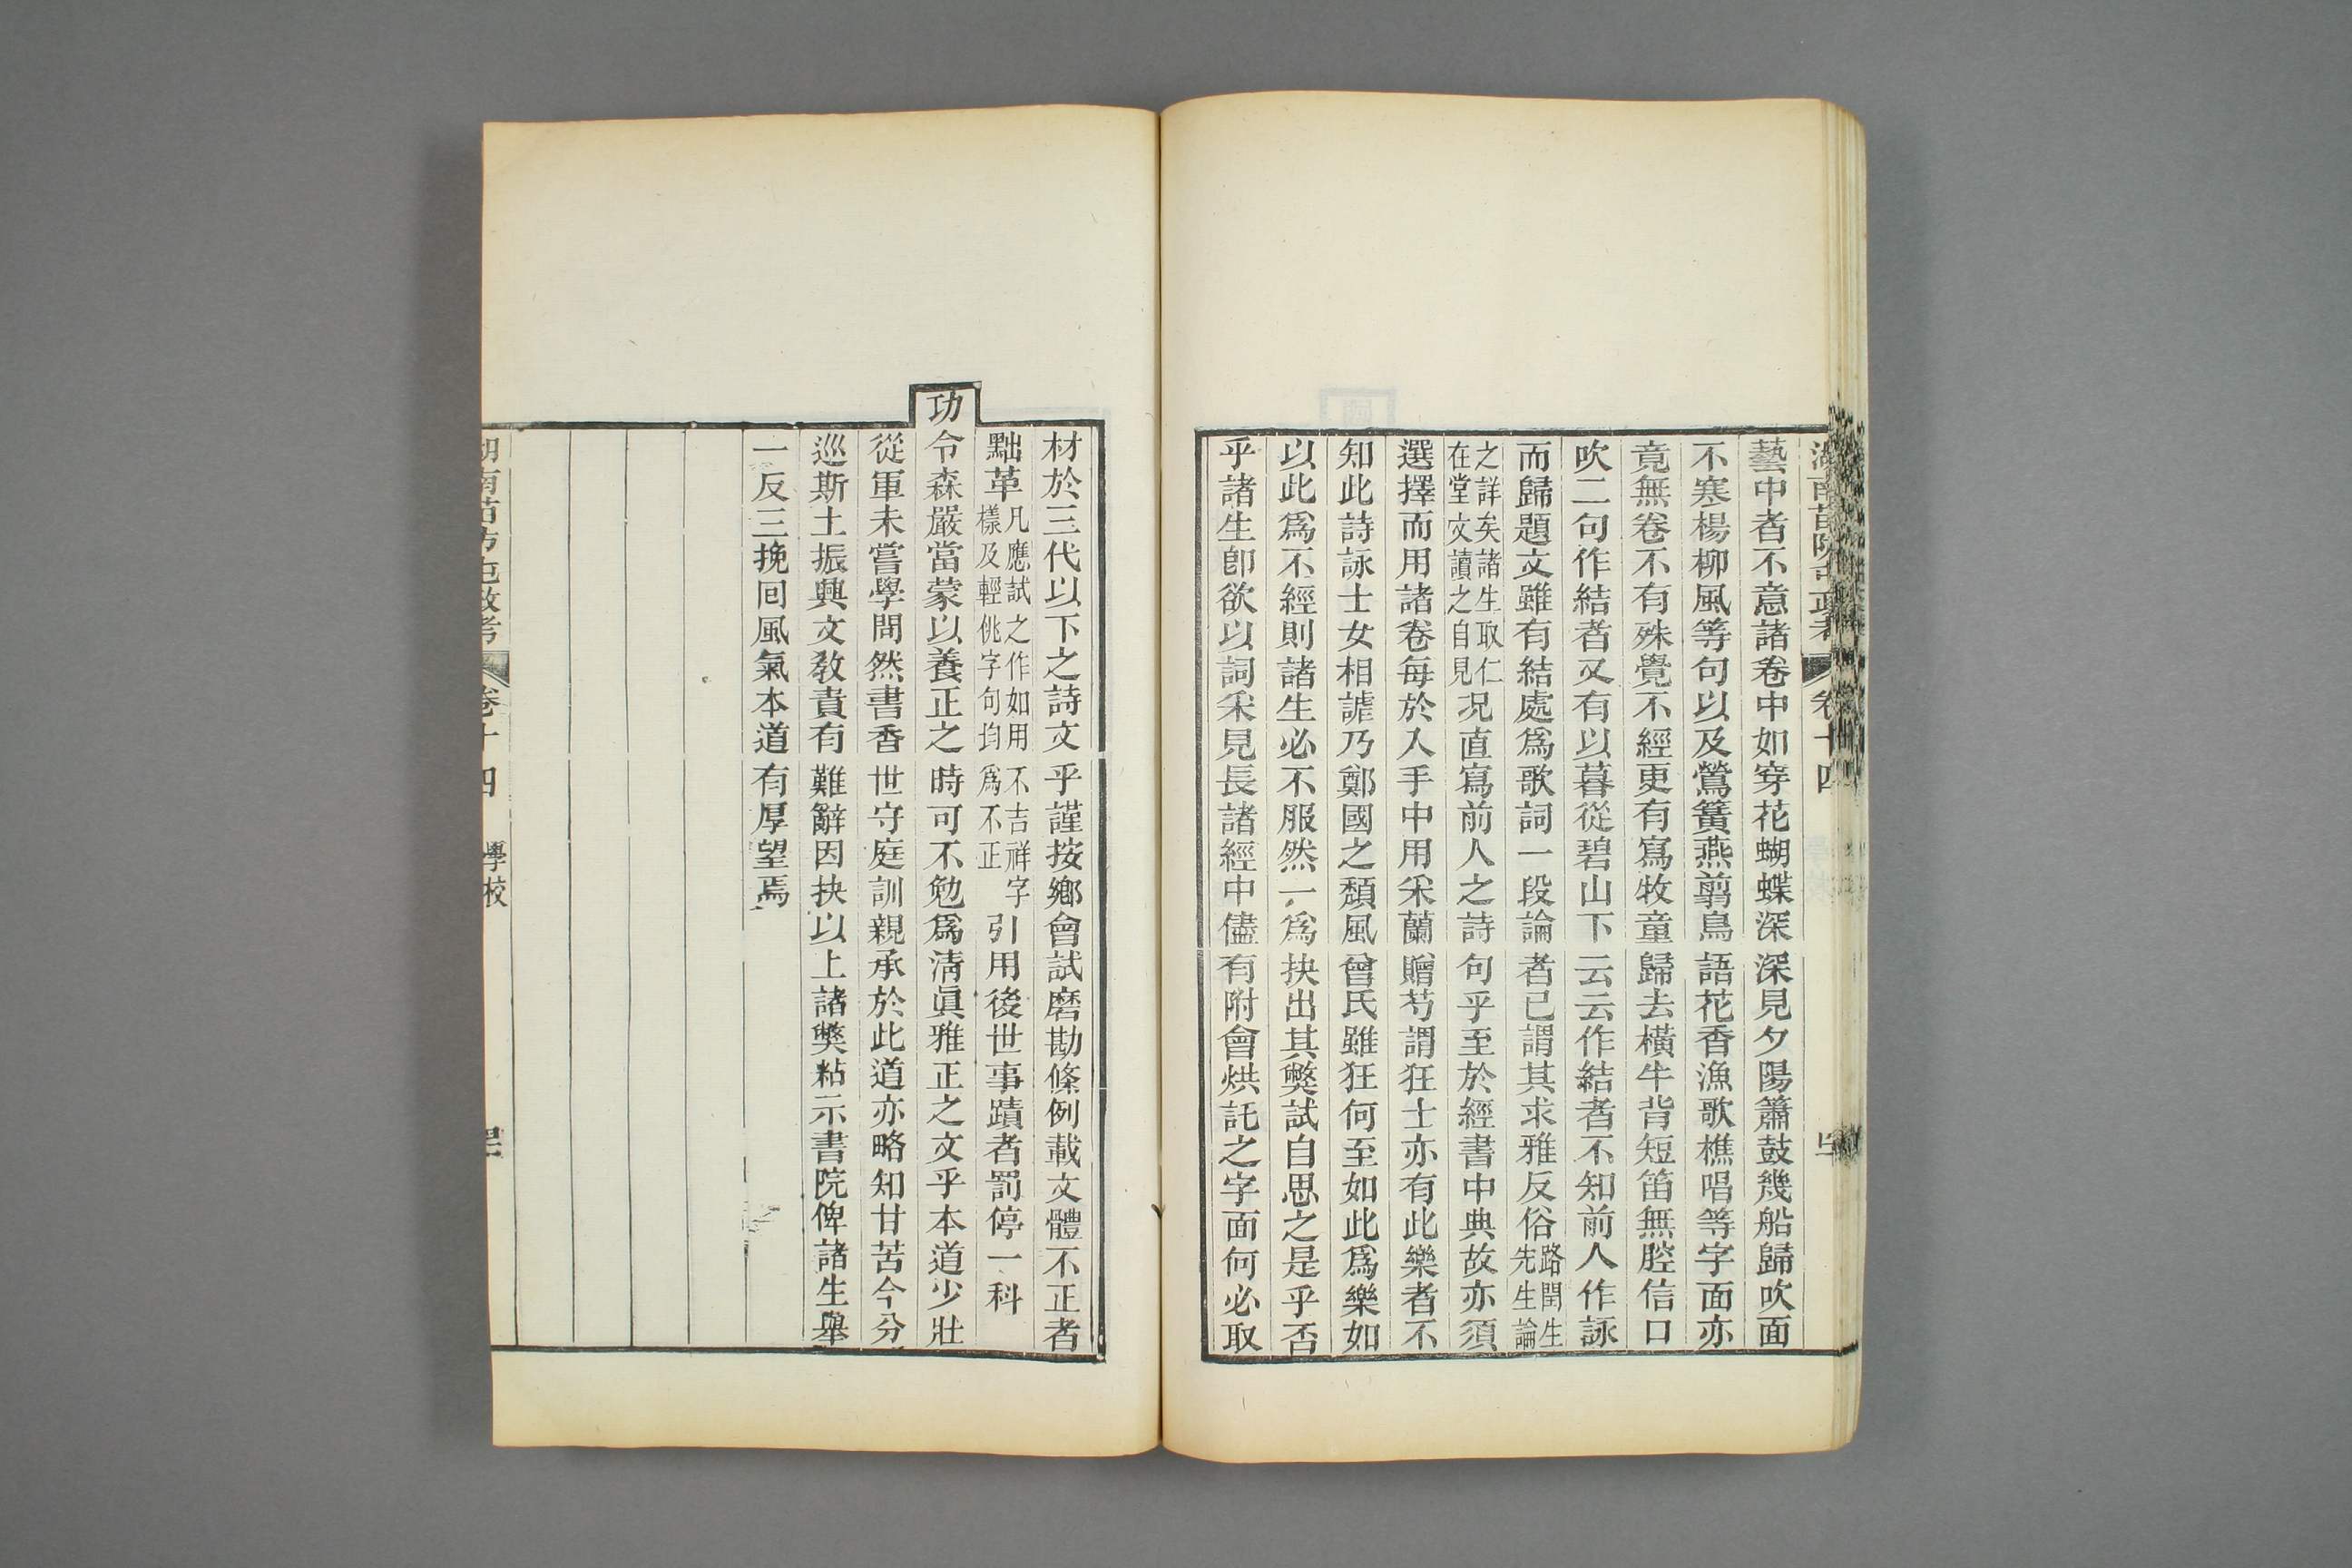 藝中者不意諸卷中如穿花蝴蝶深深見夕陽簫鼓幾船歸吹面
不寒楊柳風等句以及鶯簧燕翦鳥語花香漁歌樵唱等字面亦
竟無卷不有殊覺不經更有寫牧童歸去橫牛背短笛無腔信口
吹二句作結者又有以暮從碧山下云云作結者不知前人作詠
而歸題文雖有結處爲歌詞一段論者已謂其求雅反俗路閏生先生論
之詳矣諸生取仁在堂文讀之自見況直寫前人之詩句乎至於經書中典故亦須
選擇而用諸卷每於入手中用采蘭贈芍謂狂士亦有此樂者不
知此詩詠士女相謔乃鄭國之頹風曾氏雖狂何至如此爲樂如
以此爲不經則諸生必不服然一爲抉出其弊試自思之是乎否
乎諸生卽欲以詞采見長諸經中儘有附會烘託之字面何必取
材於三代以下之詩文乎謹按鄉會試磨勘條例載文體不正者
黜革凡應試之作如用不吉祥字樣及輕佻字句均爲不正引用後世事蹟者罰停一科
功令森嚴當蒙以養正之時可不勉爲淸眞雅正之文乎本道少壯
從軍未嘗學問然書香世守庭訓親承於此道亦略知甘苦今分
巡斯土振興文教責有難辭因抉以上諸獘粘示書院俾諸生舉
一反三挽回風氣本道有厚望焉
湖南苗防屯政考
卷十四
學校